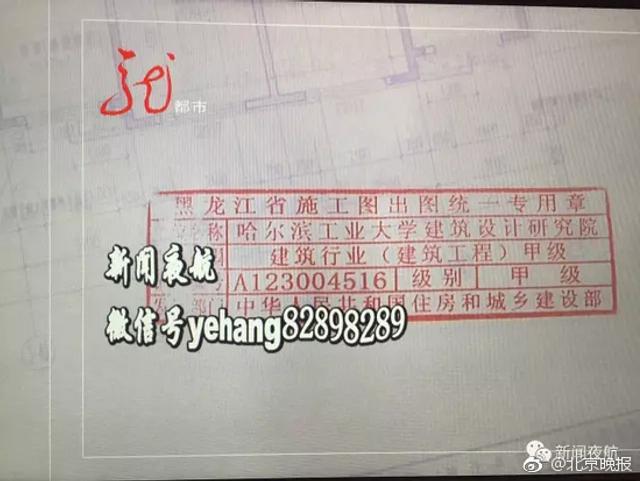 龙
都市
黑龙江省施工图出图统一专用章
名称 哈尔滨工业大学建筑设计研究院
建筑行业（建筑工程）甲级
号 A123004516 级别 甲级
部门 中华人民共和国住房和城乡建设部
新闻夜航
微信号yehang82898289
新闻夜航
@北京晚报